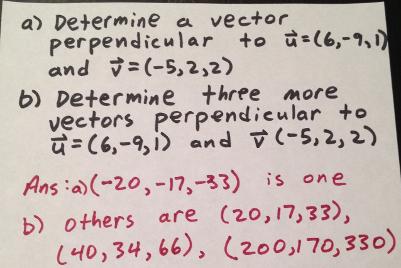 a) Determine a vector
perpendicular to u⃗=(6,-9,1)
and v⃗=(-5,2,2)
b) Determine three more
vectors perpendicular to
u⃗=(6,-9,1) and v⃗(-5,2,2)
Ans:a)(-20,-17,-33) is one
b) others are (20,17,33),
(40,34,66), (200,170,330)